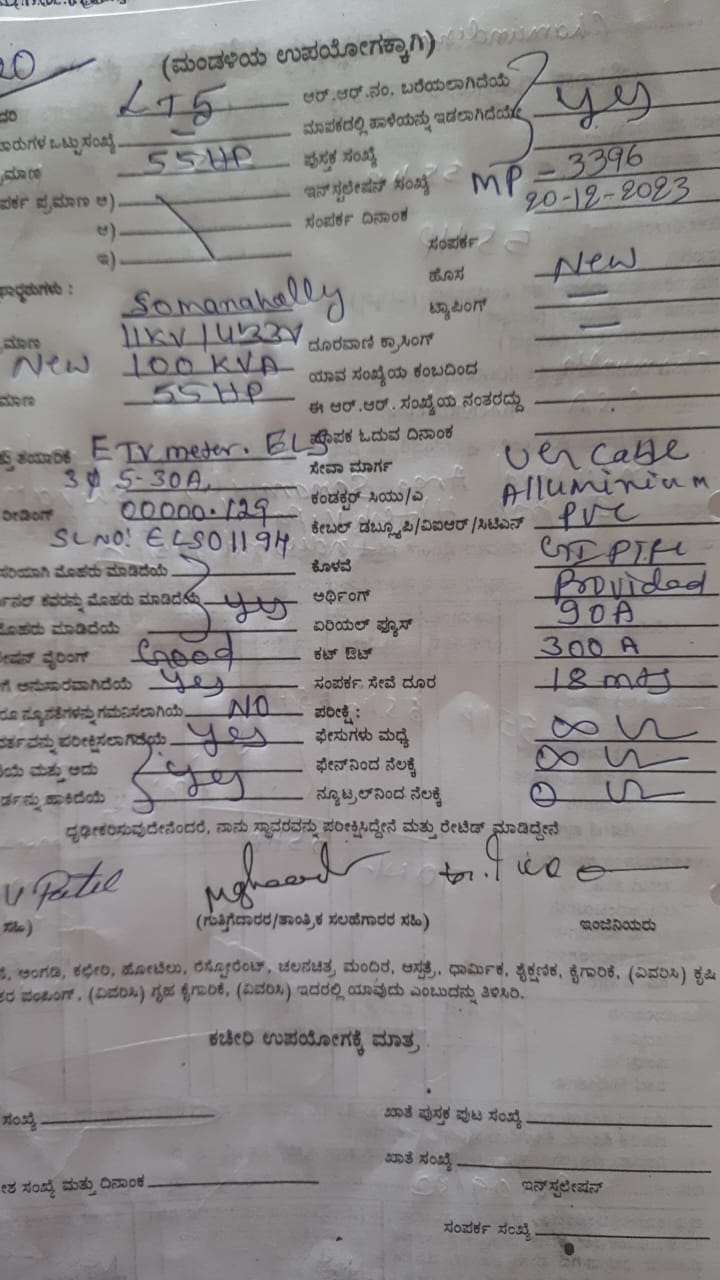 20
(ಮಂಡಳಿಯ ಉಪಯೋಗಕ್ಕಾಗಿ)
LT5 ಆರ್.ಆರ್.ನಂ. ಬರೆಯಲಾಗಿದೆಯೆ
ಒಟ್ಟು ಸಂಖ್ಯೆ - ಮಾಪಕದಲ್ಲಿ ಹಾಳೆಯನ್ನು ಇಡಲಾಗಿದೆಯೇ yes
55HP ಪುಸ್ತಕ ಸಂಖ್ಯೆ
ಪ್ರಮಾಣ ಅ) ಇನ್‌ಸ್ಟಲೇಷನ್ ಸಂಖ್ಯೆ MP - 3396
ಆ) ಸಂಪರ್ಕ ದಿನಾಂಕ 20-12-2023
ಇ) ಸಂಪರ್ಕ
ಹೊಸ New
Somanahally ಟ್ಯಾಪಿಂಗ್ -
11KV/433V ದೂರವಾಣಿ ಕ್ರಾಸಿಂಗ್ -
New 100 KVA ಯಾವ ಸಂಖ್ಯೆಯ ಕಂಬದಿಂದ
55HP ಈ ಆರ್.ಆರ್. ಸಂಖ್ಯೆಯ ನಂತರದ್ದು
ETV meter. ELS ಮಾಪಕ ಓದುವ ದಿನಾಂಕ
3φ 5-30A, ಸೇವಾ ಮಾರ್ಗ
ರೀಡಿಂಗ್ 00000.129 ಕಂಡಕ್ಟರ್ ಸಿಯು/ಎ Alluminium
SLNO: ELS01194 ಕೇಬಲ್ ಡಬ್ಲ್ಯೂಪಿ/ವಿಐಆರ್/ಸಿಟಿಎನ್ PVC
ಸರಿಯಾಗಿ ಮೊಹರು ಮಾಡಿದೆಯೆ ಕೊಳವೆ
ಕವರನ್ನು ಮೊಹರು ಮಾಡಿದೆಯೆ yes ಅರ್ಥಿಂಗ್ Provided
ಮೊಹರು ಮಾಡಿದೆಯೆ ಏರಿಯಲ್ ಫ್ಯೂಸ್ 90A
ವೈರಿಂಗ್ Good ಕಟ್ ಔಟ್ 300 A
ಅನುಸಾರವಾಗಿದೆಯೆ yes ಸಂಪರ್ಕ ಸೇವೆ ದೂರ 18 mts
ನ್ಯೂನತೆಗಳನ್ನು ಗಮನಿಸಲಾಗಿಯೆ NO ಪರೀಕ್ಷೆ :
ಪರೀಕ್ಷಿಸಲಾಗಿದೆಯೆ yes ಫೇಸುಗಳು ಮಧ್ಯೆ ∞
ಮತ್ತು ಅದು yes ಫೇಸ್‌ನಿಂದ ನೆಲಕ್ಕೆ ∞
ಹಾಕಿದೆಯೆ ನ್ಯೂಟ್ರಲ್‌ನಿಂದ ನೆಲಕ್ಕೆ
ದೃಢೀಕರಿಸುವುದೇನೆಂದರೆ, ನಾನು ಸ್ಥಾವರವನ್ನು ಪರೀಕ್ಷಿಸಿದ್ದೇನೆ ಮತ್ತು ರೇಟಿಡ್ ಮಾಡಿದ್ದೇನೆ
V Patel
ಸಹಿ) (ಗುತ್ತಿಗೆದಾರರ/ತಾಂತ್ರಿಕ ಸಲಹೆಗಾರರ ಸಹಿ) ಇಂಜಿನಿಯರು
ಅಂಗಡಿ, ಕಛೇರಿ, ಹೋಟೆಲು, ರೆಸ್ಟೋರೆಂಟ್, ಚಲನಚಿತ್ರ ಮಂದಿರ, ಆಸ್ಪತ್ರೆ, ಧಾರ್ಮಿಕ, ಶೈಕ್ಷಣಿಕ, ಕೈಗಾರಿಕೆ, (ವಿವರಿಸಿ) ಕೃಷಿ
ಪಂಪಿಂಗ್, (ವಿವರಿಸಿ) ಗೃಹ ಕೈಗಾರಿಕೆ, (ವಿವರಿಸಿ) ಇದರಲ್ಲಿ ಯಾವುದು ಎಂಬುದನ್ನು ತಿಳಿಸಿರಿ.
ಕಚೇರಿ ಉಪಯೋಗಕ್ಕೆ ಮಾತ್ರ
ಸಂಖ್ಯೆ ಖಾತೆ ಪುಸ್ತಕ ಪುಟ ಸಂಖ್ಯೆ
ಖಾತೆ ಸಂಖ್ಯೆ
ಸಂಖ್ಯೆ ಮತ್ತು ದಿನಾಂಕ ಇನ್‌ಸ್ಟಲೇಷನ್
ಸಂಪರ್ಕ ಸಂಖ್ಯೆ